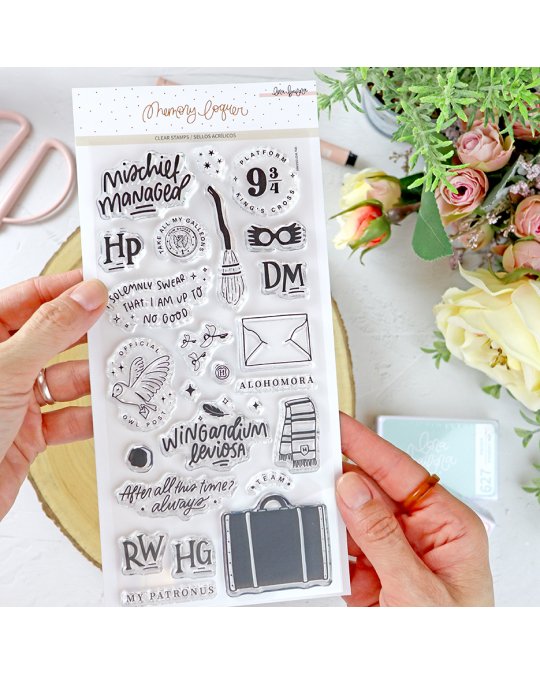 Memory loquer
CLEAR STAMPS / SELLOS ACRÍLICOS
Mischief
managed
PLATFORM
9 3/4
KING'S CROSS
HP
TAKE ALL MY GALLEONS
DM
I SOLEMNLY SWEAR
THAT I AM UP TO
NO GOOD
ALOHOMORA
OFFICIAL
OWL POST
H
WINGARDIUM
leviosa
After all this time?
always
TEAM
RW
HG
MY PATRONUS
G27